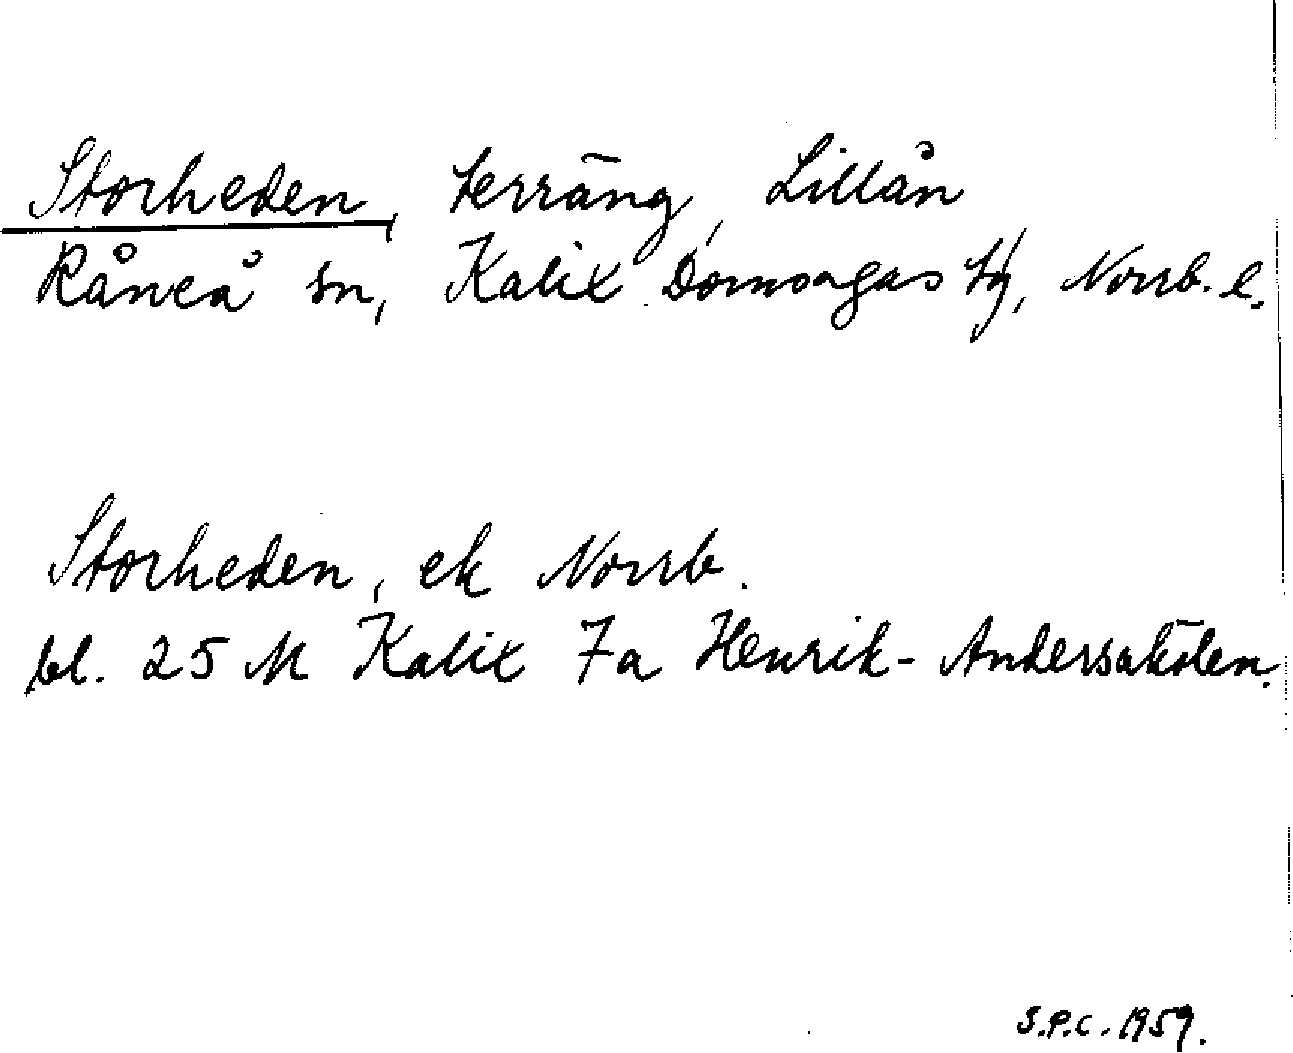 Storheden, terräng, Lillån
Råneå sn, Kalix Domsagas tg, Norrb. l.
Storheden, ek Norrb.
bl. 25 M Kalix 7a Henrik-Andersakölen.
S.P.C. 1959.